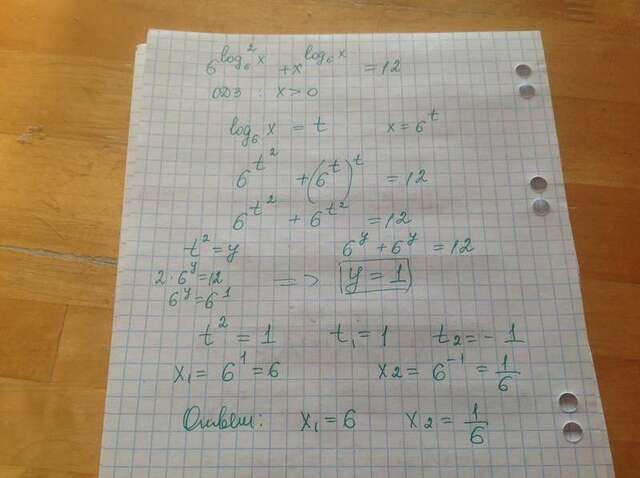 6^{log_6^2 x} + x^{log_6 x} = 12
ОДЗ : x > 0
log_6 x = t x = 6^t
6^{t^2} + (6^t)^t = 12
6^{t^2} + 6^{t^2} = 12
t^2 = y 6^y + 6^y = 12
2 · 6^y = 12 => y = 1
6^y = 6^1
t^2 = 1 t_1 = 1 t_2 = - 1
x_1 = 6^1 = 6 x_2 = 6^{-1} = \frac{1}{6}
Ответ: x_1 = 6 x_2 = \frac{1}{6}